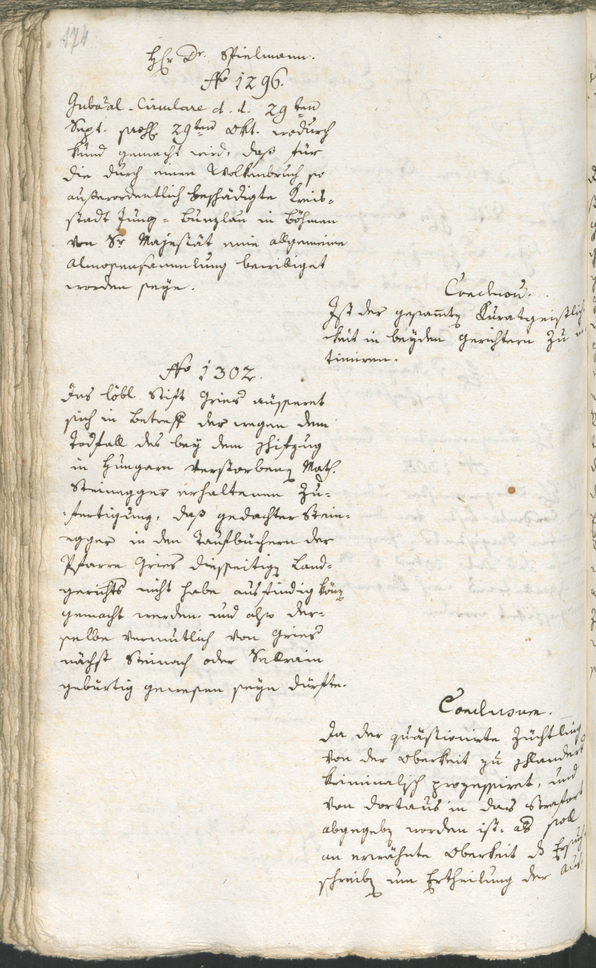 474
Hr Dr. Spielmann.
No 1296.
Gubãal-Circulare d. d. 29ten
Sept. präs. 29ten Okt. wodurch
kund gemacht wird, daß für
die durch einen Wolkenbruch so
außerordentlich beschädigte Kreis-
stadt Jung-Bunzlau in Böhmen
von Sr Majestät eine allgemeine
Almosensammlung bewilliget
worden seye.
Conclusum.
Ist der gesam̃te Kuratgeistlig-
keit in beyden Gerichtern zu in-
timiren.
No 1302.
Das löbl. Stift Gries äusseret
sich in Betreff der wegen dem
Todfall des bey dem Schifzug
in Hungarn verstorbenen Math.
Steinegger erhaltenen Zu-
fertigung, daß gedachter Stein-
egger in den Taufbüchern der
Pfarre Gries diesseitigen Land-
gerichts nicht habe ausfindig können
gemacht werden und also der-
selbe vermutlich von Gries
nächst Steinach oder Sellrain
gebürtig gewesen seyn dürfte.
Conclusum.
Da der quästionirte Züchtling
von der Oberkeit zu Schlanders
kriminalisch prozessiret, und
von dortaus in das Strafort
abgegeben worden ist, als soll
an erwähnte Oberkeit das Ersuch-
schreiben um Ertheilung der Aus-